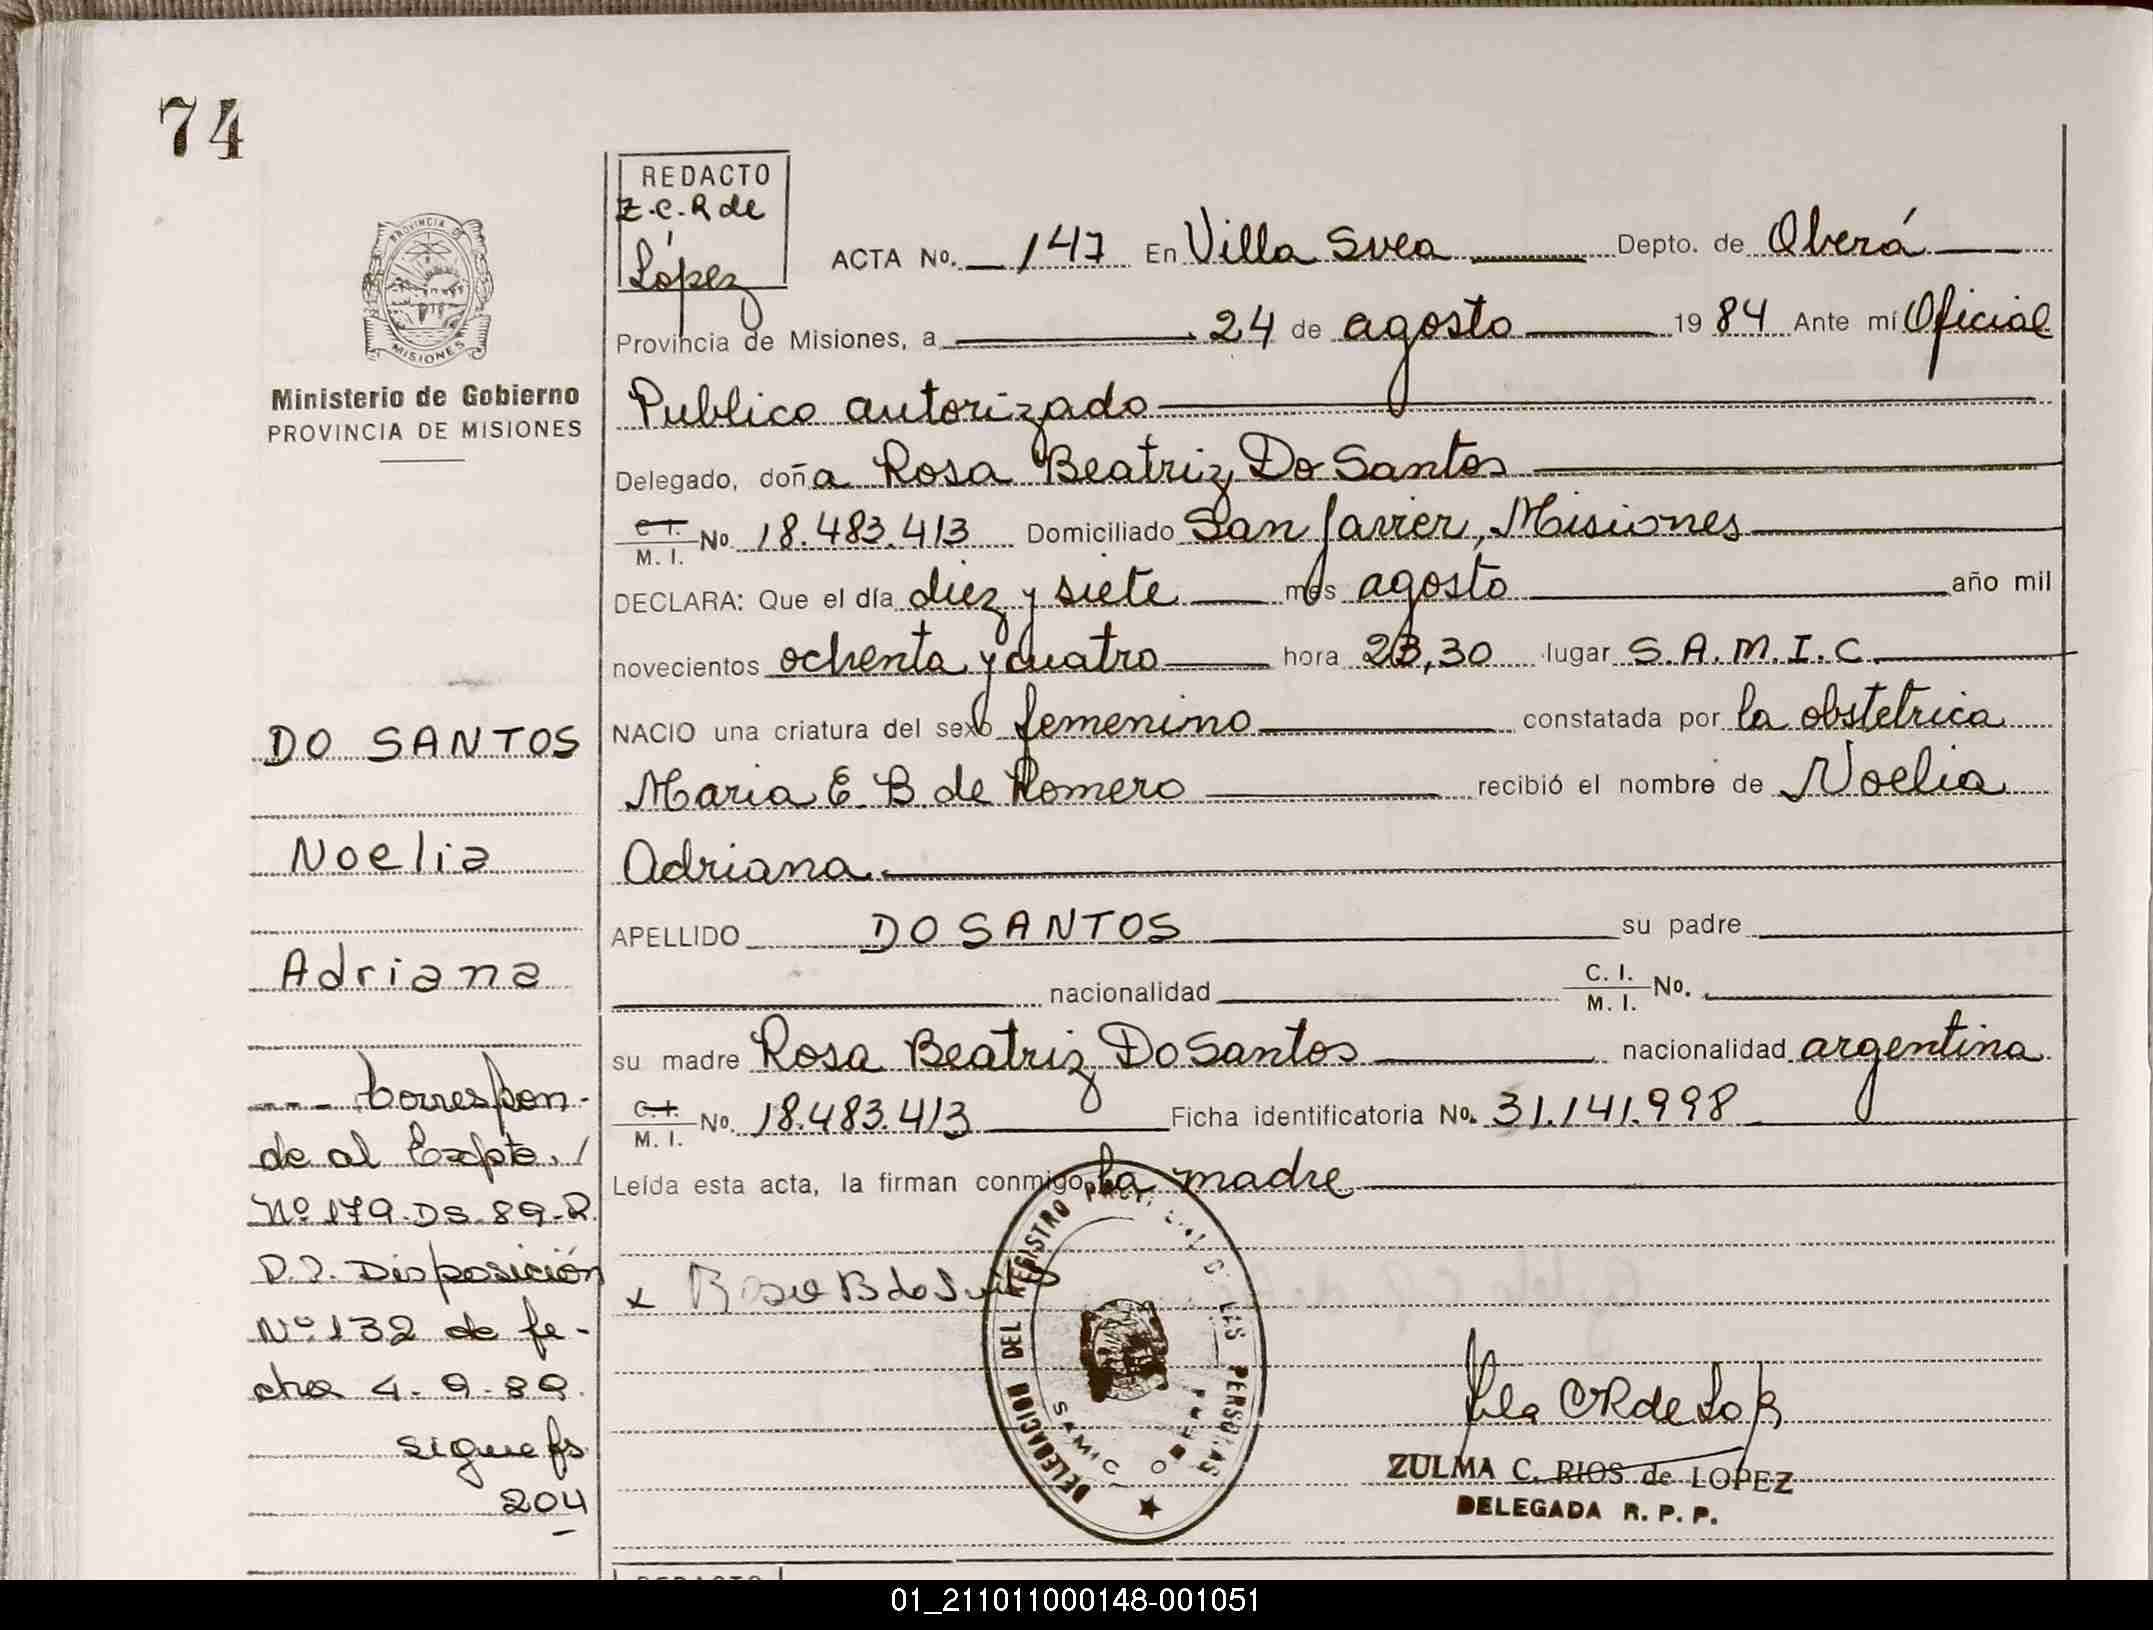 74
REDACTO
Z.C.R de
López
PROVINCIA DE
MISIONES
Ministerio de Gobierno
PROVINCIA DE MISIONES
ACTA No. 147 En Villa Svea Depto. de Oberá
Provincia de Misiones, a 24 de agosto 1984 Ante mí Oficial
Publico autorizado
Delegado, doña Rosa Beatriz Do Santos
C.I.
M. I. No 18.483.413 Domiciliado San Javier, Misiones
DECLARA: Que el día diez y siete mes agosto año mil
novecientos ochenta y cuatro hora 23,30 lugar S.A.M.I.C.
NACIO una criatura del sexo femenino constatada por la obstetrica
Maria E. B. de Romero recibió el nombre de Noelia
Adriana.
APELLIDO DO SANTOS su padre
nacionalidad C. I.
M. I. No.
su madre Rosa Beatriz Do Santos nacionalidad argentina
C.I.
M. I. No. 18.483.413 Ficha identificatoria No. 31.141.998
Leída esta acta, la firman conmigo, la madre
DO SANTOS
Noelia
Adriana
--- Correspon-
de al Expte. /
Nº 179-DS-89-R.
P.P. Disposición
Nº 132 de fe-
cha 4-9-89.
sigue fs
204
x Rosa B do
DELEGACION DEL REGISTRO PROV. DE LES PERSONAS
SAMIC OBERA
ZULMA C. RIOS de LOPEZ
DELEGADA R. P. P.
REDACTO
01_211011000148-001051